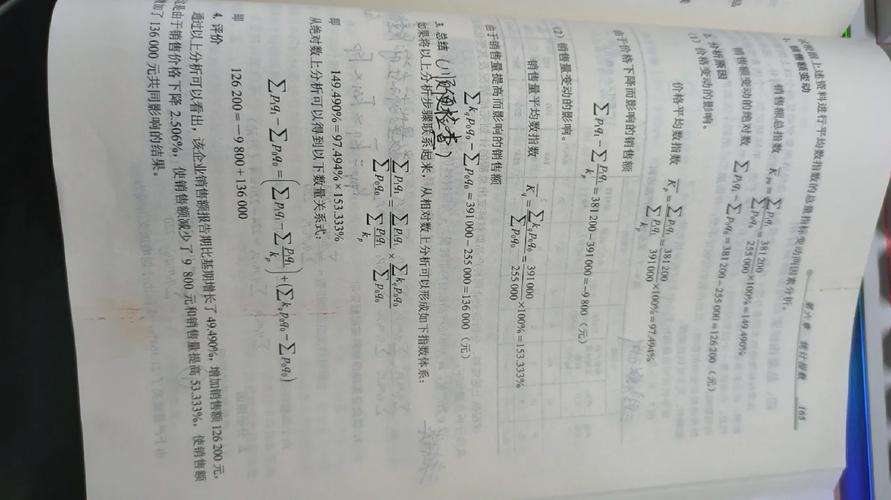 第六章 统计指数 165
根据上述资料进行平均数指数的总量指标变动两因素分析。
1. 销售额变动
销售额总指数 K̅pq = ∑p₁q₁/∑p₀q₀ = 381 200/255 000 ×100%=149.490%
销售额变动的绝对数 ∑p₁q₁－∑p₀q₀＝381 200－255 000＝126 200（元）
2. 分析原因
(1) 价格变动的影响。
价格平均数指数 K̅p = ∑p₁q₁/∑(p₁q₁/kp) = 381 200/391 000 ×100%=97.494%
由于价格下降而影响的销售额
∑p₁q₁－∑p₁q₁/kp＝381 200－391 000＝－9 800（元）
(2) 销售量变动的影响。
销售量平均数指数 K̅q = ∑kqp₀q₀/∑p₀q₀ = 391 000/255 000 ×100%=153.333%
由于销售量提高而影响的销售额
∑kqp₀q₀－∑p₀q₀＝391 000－255 000＝136 000（元）
3. 总结
如果将以上分析步骤联系起来，从相对数上分析可以形成如下指数体系：
∑p₁q₁/∑p₀q₀ = ∑p₁q₁/∑(p₁q₁/kp) × ∑kqp₀q₀/∑p₀q₀
即 149.490%＝97.494%×153.333%
从绝对数上分析可以得到以下数量关系式：
∑p₁q₁－∑p₀q₀＝(∑p₁q₁－∑p₁q₁/kp)＋(∑kqp₀q₀－∑p₀q₀)
即 126 200＝－9 800＋136 000
4. 评价
通过以上分析可以看出，该企业销售额报告期比基期增长了 49.490%，增加销售额 126 200 元，
是由于销售价格下降 2.506%，使销售额减少了 9 800 元和销售量提高 53.333%，使销售额
增加了 136 000 元共同影响的结果。